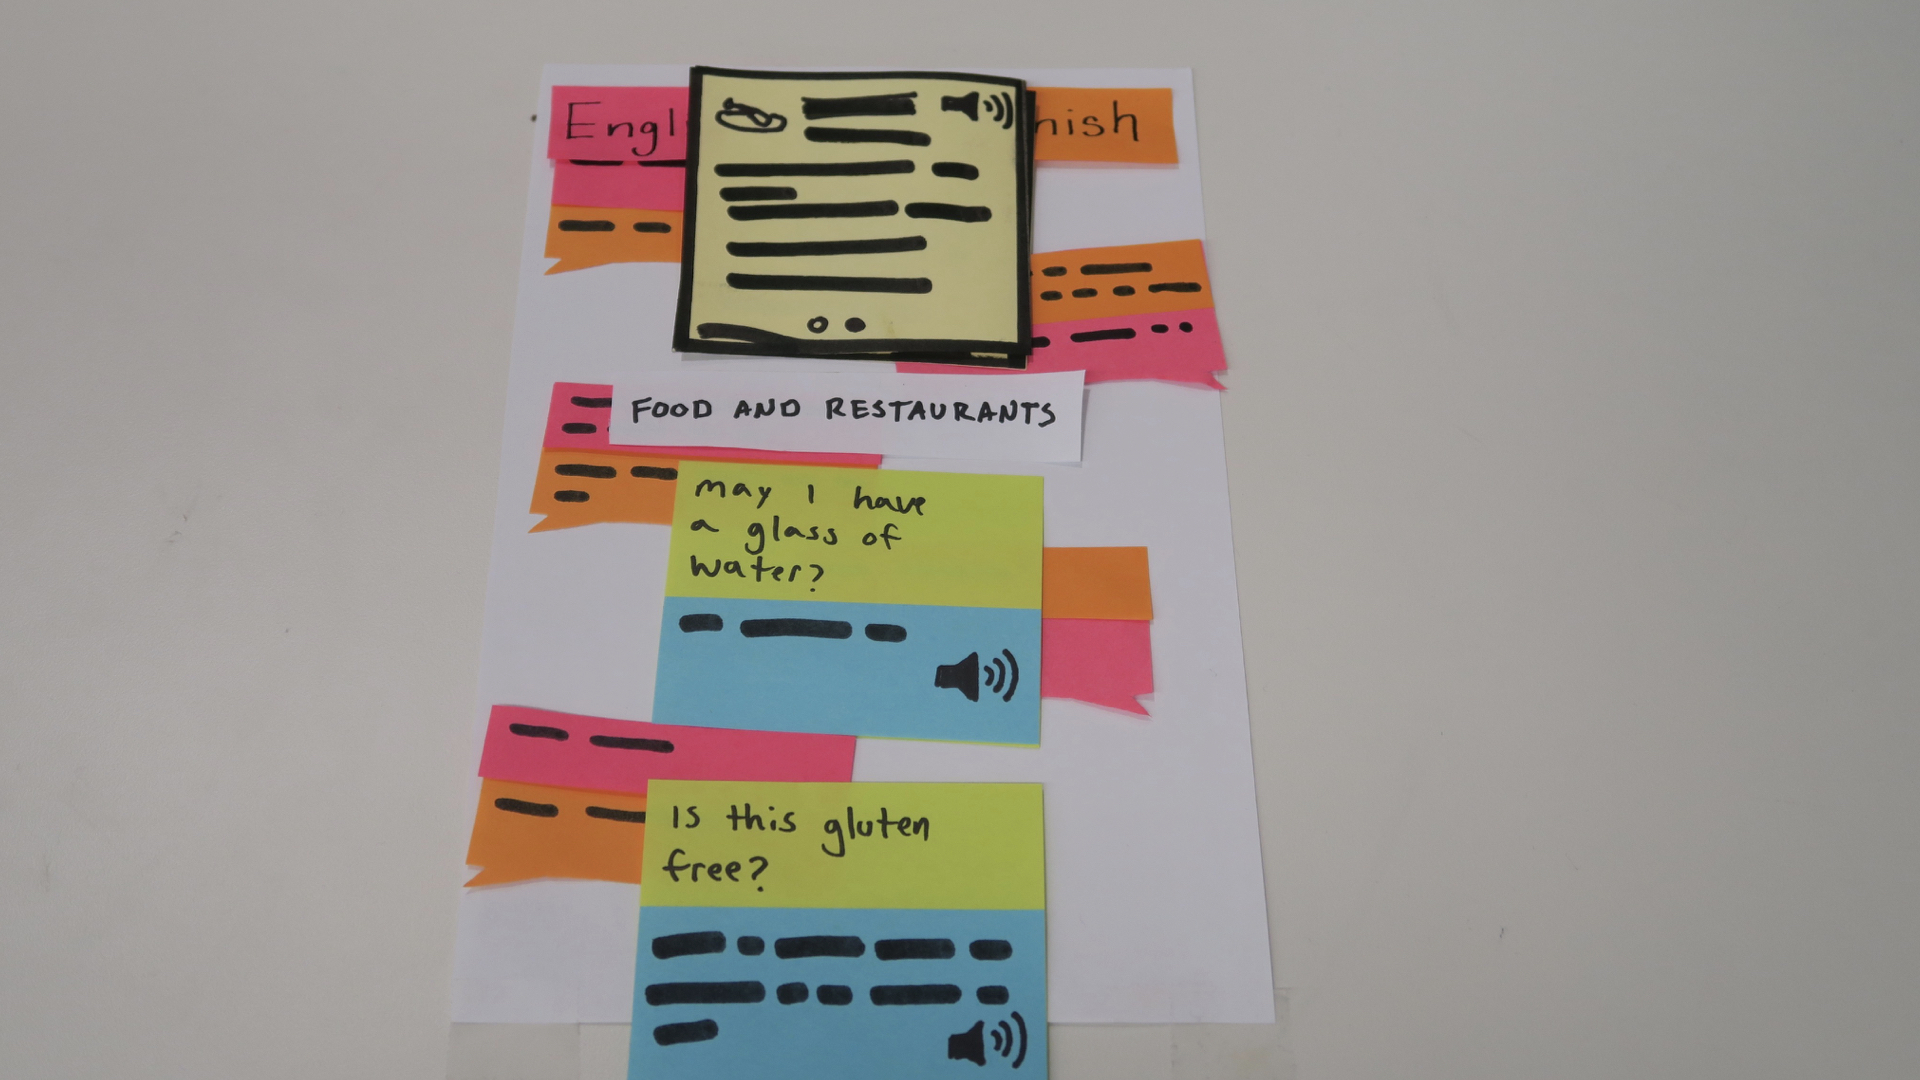 Engl
nish
FOOD AND RESTAURANTS
may I have
a glass of
water?
Is this gluten
free?